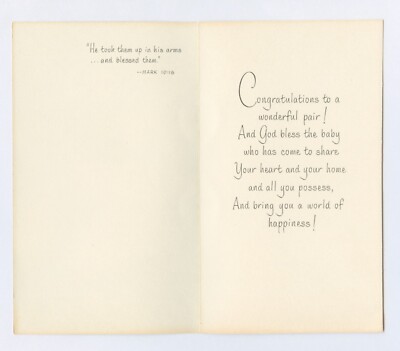 "He took them up in his arms
...and blessed them."
—MARK 10:16
Congratulations to a
wonderful pair!
And God bless the baby
who has come to share
Your heart and your home
and all you possess,
And bring you a world of
happiness!